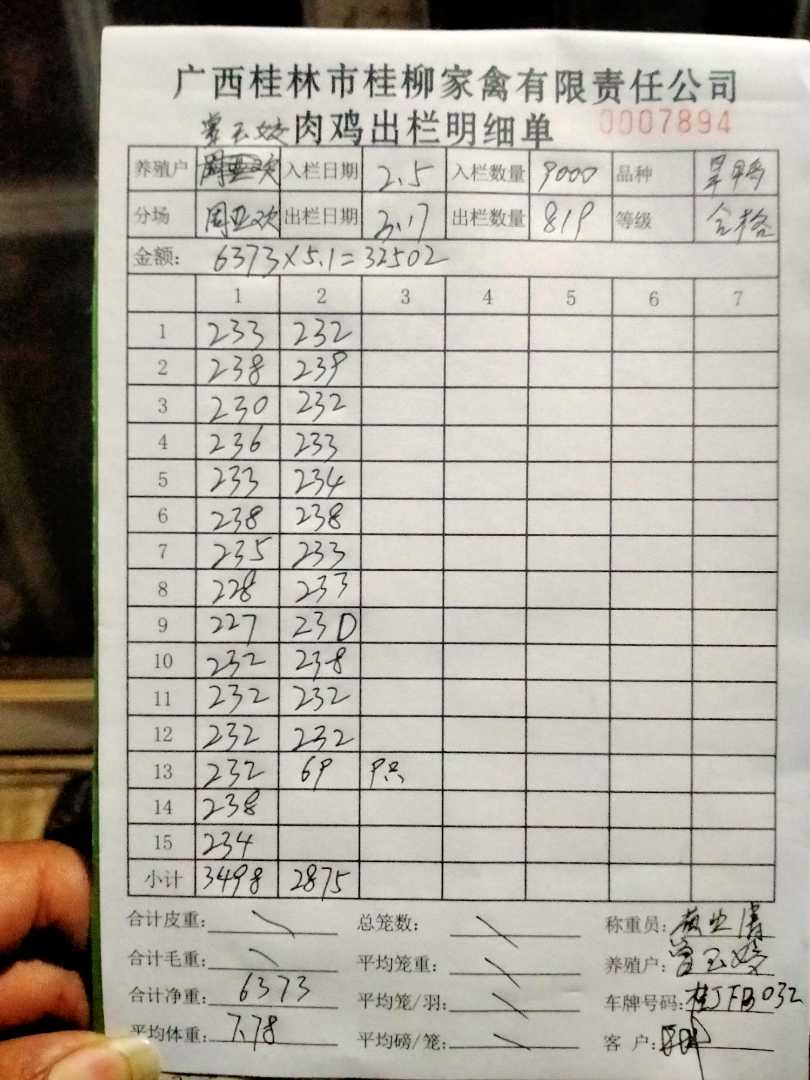 广西桂林市桂柳家禽有限责任公司
肉鸡出栏明细单 0007894
养殖户 入栏日期 2.5 入栏数量 9000 品种
分场 周亚欢 出栏日期 3.17 出栏数量 819 等级 合格
金额: 6373×5.1=32502
1 2 3 4 5 6 7
1 233 232
2 238 239
3 230 232
4 236 233
5 233 234
6 238 238
7 235 233
8 228 233
9 227 230
10 232 238
11 232 232
12 232 232
13 232 69 9只
14 238
15 234
小计 3498 2875
合计皮重: 总笼数: 称重员:
合计毛重: 平均笼重: 养殖户:
合计净重: 6373 平均笼/羽: 车牌号码: 桂JFB032
平均体重: 7.78 平均磅/笼: 客 户: